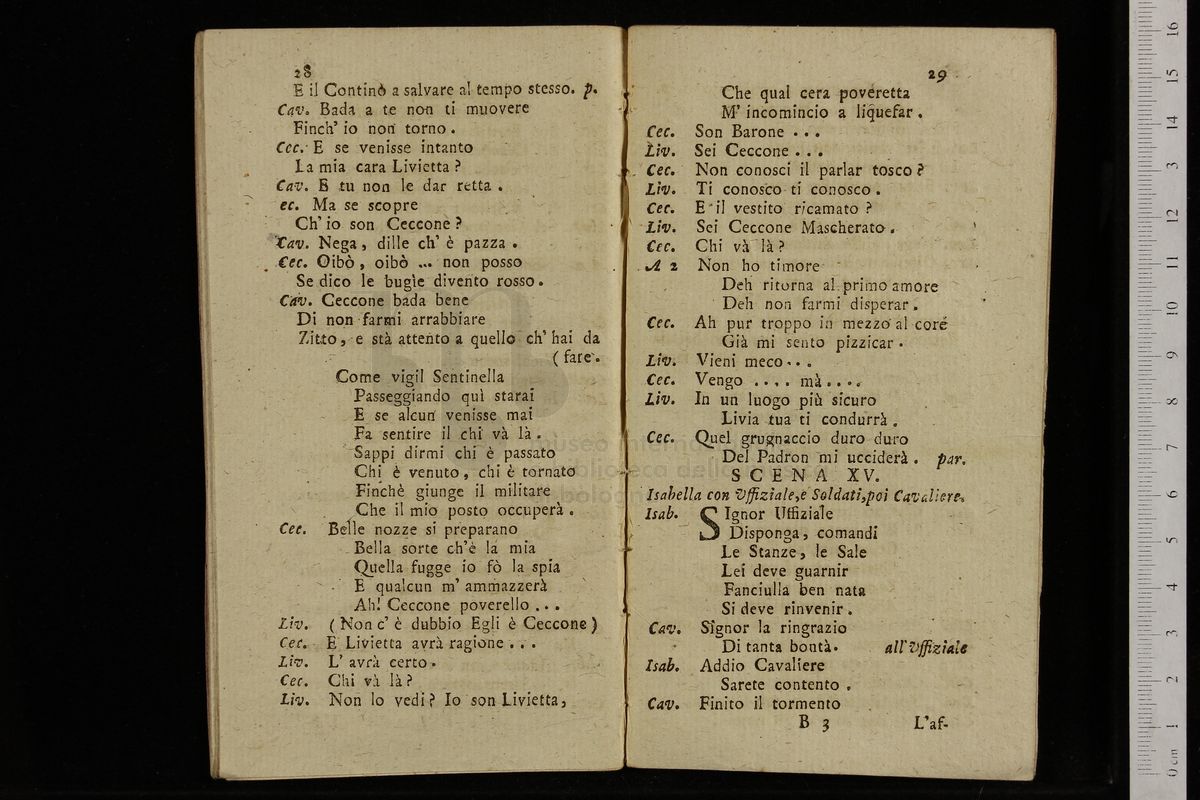 28
E il Continò a salvare al tempo stesso. p.
Cav. Bada a te non ti muovere
Finch' io non torno .
Cec. E se venisse intanto
La mia cara Livietta ?
Cav. E tu non le dar retta .
ec. Ma se scopre
Ch' io son Ceccone ?
Cav. Nega , dille ch' è pazza .
Cec. Oibò , oibò ... non posso
Se dico le bugìe divento rosso .
Cav. Ceccone bada bene
Di non farmi arrabbiare
Zitto , e stà attento a quello ch' hai da
( fare .
Come vigil Sentinella
Passeggiando quì starai
E se alcun venisse mai
Fa sentire il chi và là .
Sappi dirmi chi è passato
Chi è venuto , chi è tornato
Finchè giunge il militare
Che il mio posto occuperà .
Cec. Belle nozze si preparano
Bella sorte ch'è la mia
Quella fugge io fò la spia
E qualcun m' ammazzerà
Ah! Ceccone poverello . . .
Liv. ( Non c' è dubbio Egli è Ceccone )
Cec. E Livietta avrà ragione . . .
Liv. L' avrà certo .
Cec. Chi và là ?
Liv. Non lo vedi ? Io son Livietta ,
29
Che qual cera poveretta
M' incomincio a liquefar .
Cec. Son Barone . . .
Liv. Sei Ceccone . . .
Cec. Non conosci il parlar tosco ?
Liv. Ti conosco ti conosco .
Cec. E il vestito ricamato ?
Liv. Sei Ceccone Mascherato .
Cec. Chi và là ?
A 2 Non ho timore
Deh ritorna al primo amore
Deh non farmi disperar .
Cec. Ah pur troppo in mezzo al core
Già mi sento pizzicar .
Liv. Vieni meco . . .
Cec. Vengo . . . . mà . . . .
Liv. In un luogo più sicuro
Livia tua ti condurrà .
Cec. Quel grugnaccio duro duro
Del Padron mi ucciderà . par.
SCENA XV.
Isabella con Vffiziale,e Soldati,poi Cavaliere.
Isab. SIgnor Uffiziale
Disponga , comandi
Le Stanze , le Sale
Lei deve guarnir
Fanciulla ben nata
Si deve rinvenir .
Cav. Signor la ringrazio
Di tanta bontà . all' Vffiziale
Isab. Addio Cavaliere
Sarete contento .
Cav. Finito il tormento
B 3 L'af-